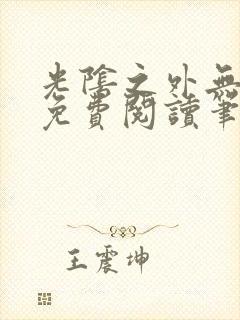 光陰之外無
免費閱讀筆
王震坤